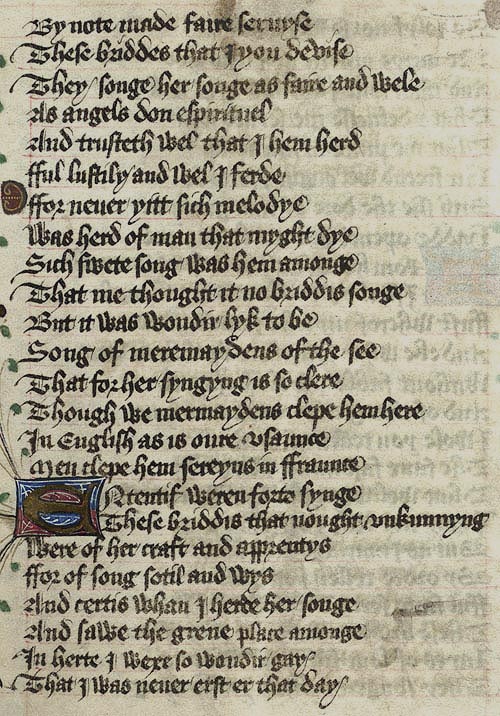 By note made faire seruyse
These briddes that I you devise
They songe her songe as faire and wele
As angels don espirituel
And trusteth wel that I hem herd
fful lustily and wel I ferde
ffor never yitt sich melodye
Was herd of man that myght dye
Sich swete song was hem amonge
That me thought it no briddis songe
But it was wondir lyk to be
Song of meremaydens of the see
That for her syngyng is so clere
Though we mermaydens clepe hem here
In English as is oure vsaunce
Men clepe hem sereyns in ffraunce
Ententif weren forto synge
These briddis that nought vnkunnyng
Were of her craft and apprentys
ffor of song sotil and wys
And certis whan I herde her songe
And sawe the grene place amonge
In herte I wexe so wondir gay
That I was never erst er that day